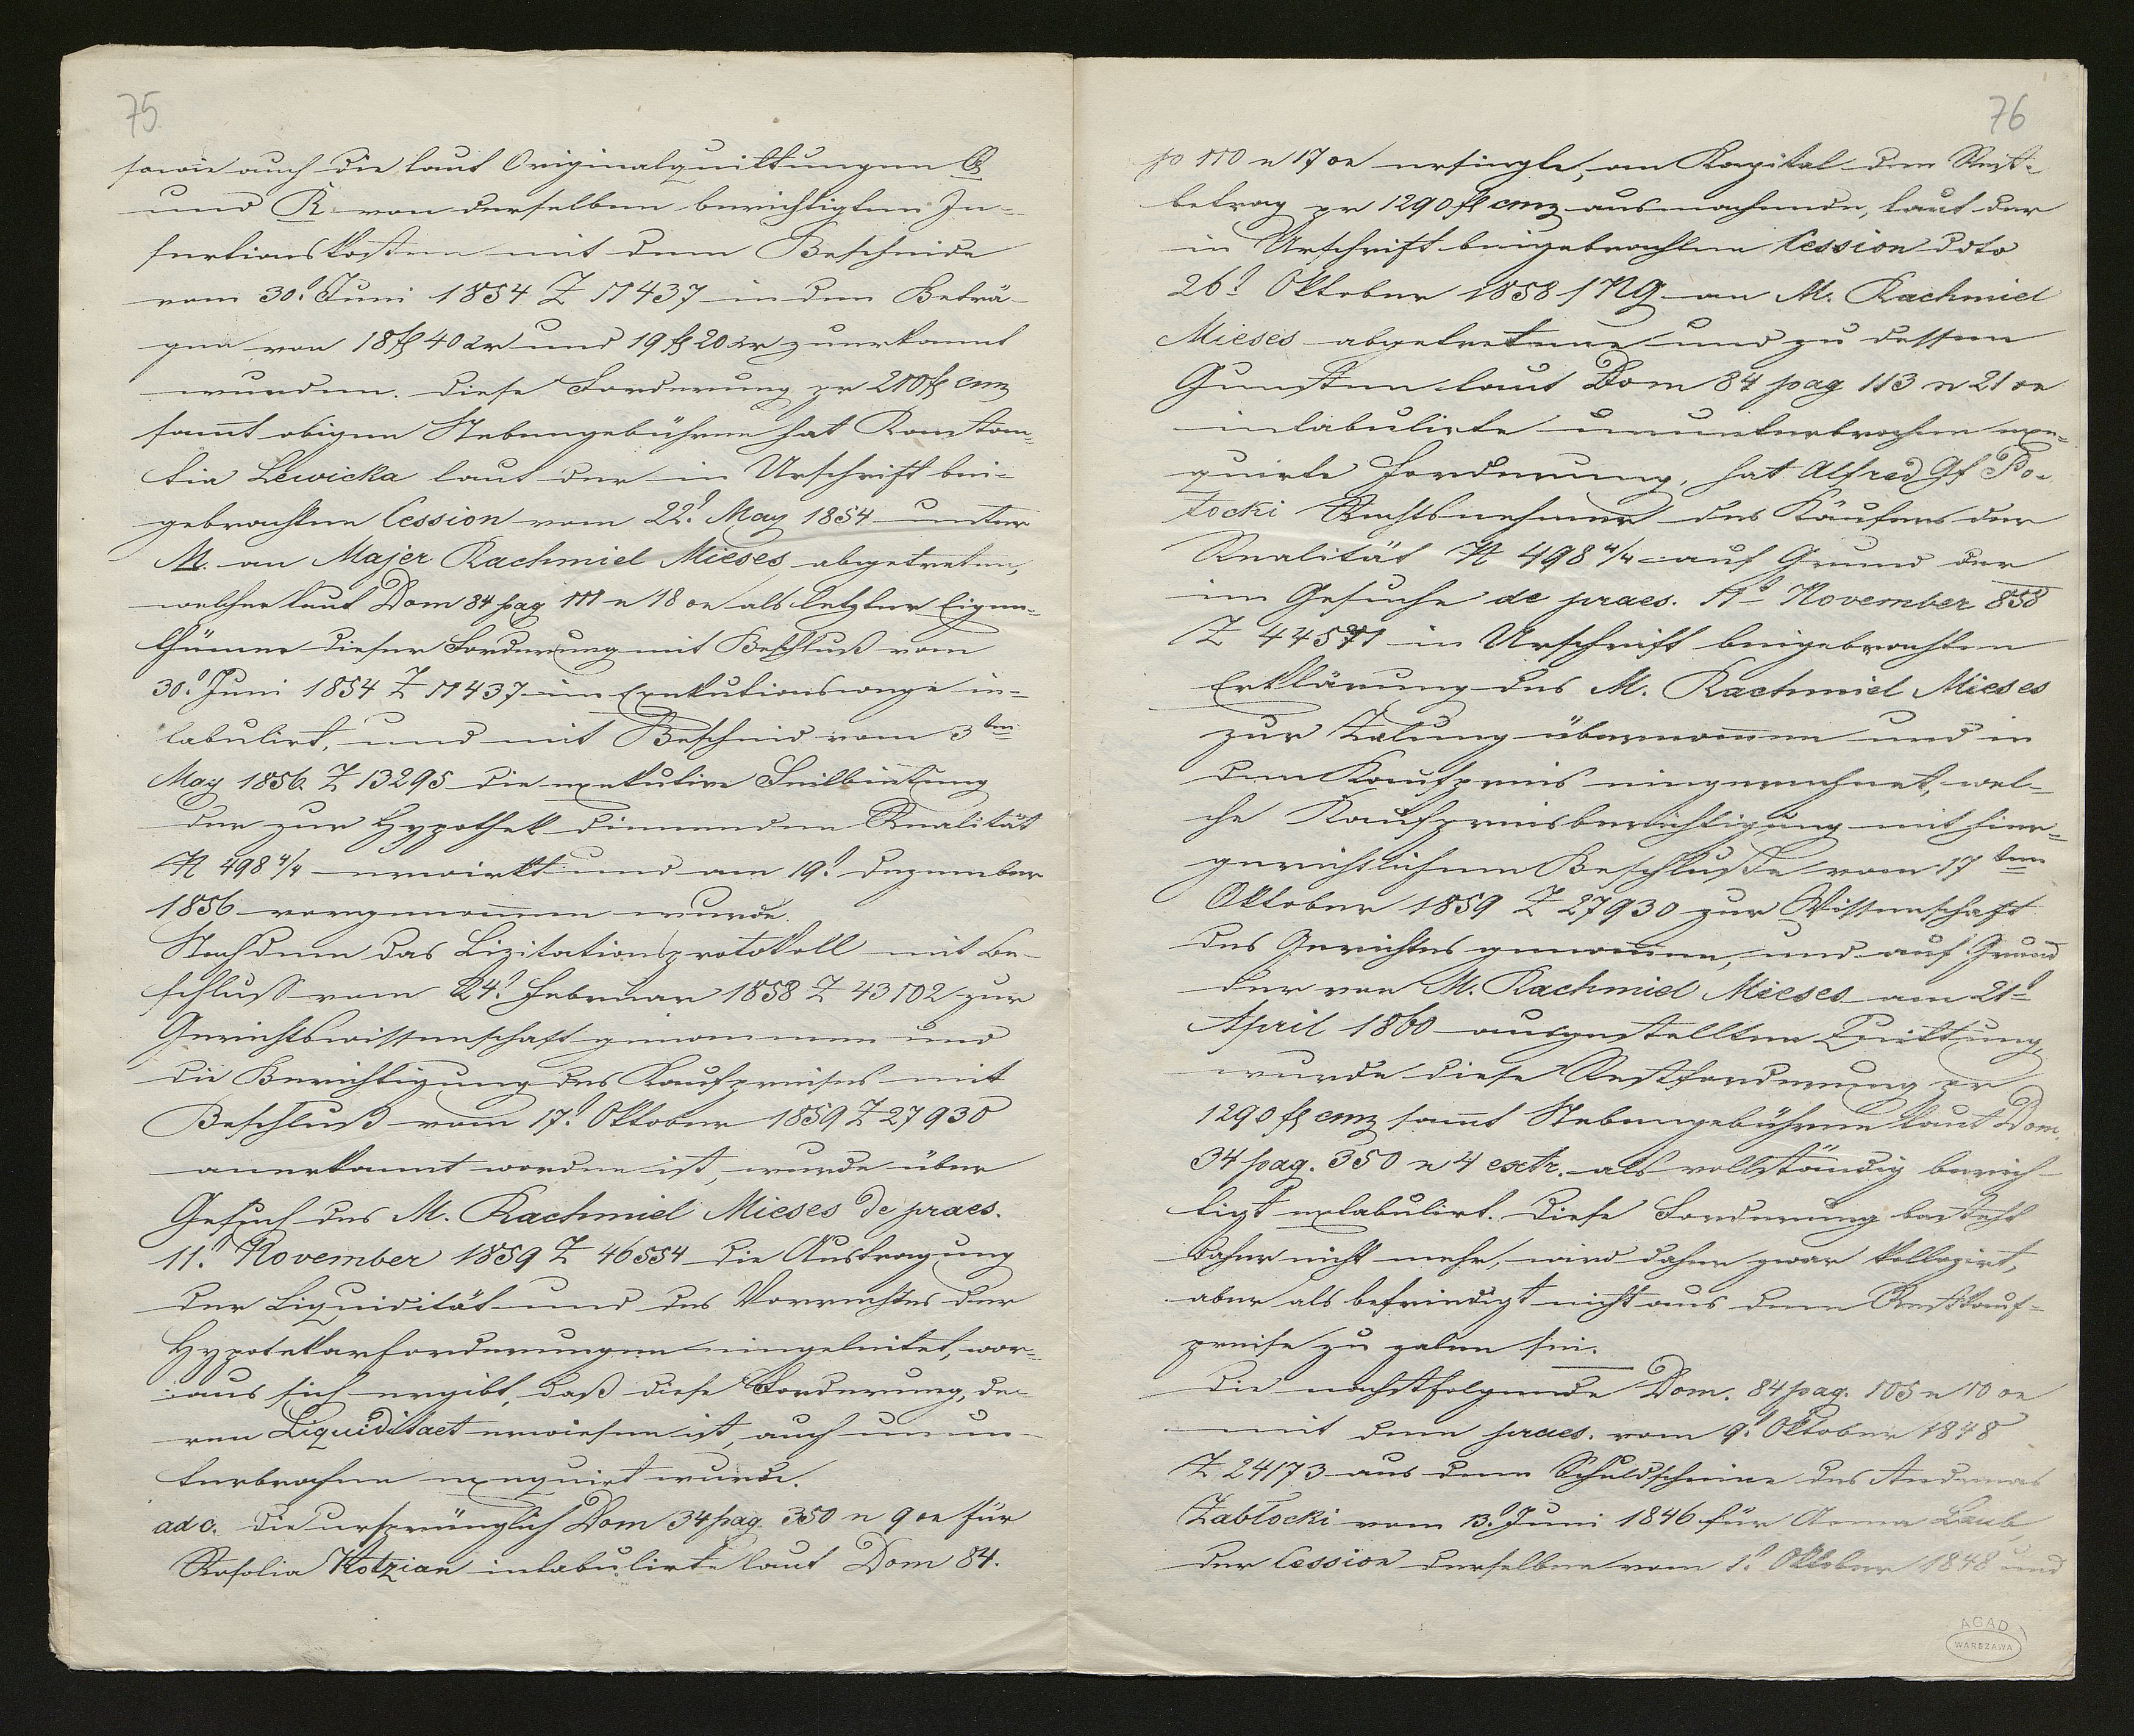 75
sowie auch die laut Originalquittungen Q
und R von derselben berichtigten In-
sertionskosten mit dem Bescheide
vom 30t Juni 1854 Z 11437 in den Beträ-
gen von 18 fl 40 xr und 19 fl 20 xr zuerkannt
wurden. Diese Forderung pr 200 fl cmz
samt obigen Nebengebühren hat Konstan-
tia Lewicka laut der in Urschrift bei-
gebrachten Cession vom 22t May 1854 unter
M. an Majer Rachmiel Mieses abgetreten,
welcher laut Dom 84 pag 111 n 18 on als letzter Eigen-
thümer dieser Forderung mit Beschluß vom
30t Juni 1854 Z 11437 im Exekutionswege in-
tabulirt, und mit Bescheid vom 3ten
May 1856 Z 13295 die exekutive Feilbietung
der zur Hypothek dienenden Realität
N 498 4/4 erwirkt und am 19t Dezember
1856 vorgenommen wurde.
Nachdem das Lizitationsprotokoll mit Be-
schluss vom 24t Februar 1858 Z 43102 zur
Gerichtswissenschaft genommen und
die Berichtigung des Kaufpreises mit
Beschluß vom 17t Oktober 1859 Z 27930
anerkannt worden ist, wurde über
Gesuch des M. Rachmiel Mieses de praes.
11t November 1859 Z 46554 die Austragung
der Liquidität und des Vorrechtes der
Hypotekarforderungen eingeleitet, wor-
aus sich ergibt, daß diese Forderung, de-
ren Liquiditaet erwiesen ist, auch unun-
terbrochen exequirt wurde.
ad c. die ursprünglich Dom 34 pag. 350 n 9 on für
Rosolia Kotzian intabulirte laut Dom 84.
76
p 110 n 17 on ersingte, an Kapital den Rest-
betrag pr 1290 fl cmz ausmachende, laut der
in Urschrift beigebrachten Cession ddto
26t Oktober 1858 an M. Rachmiel
Mieses abgetretene und zu dessen
Gunsten laut Dom 84 pag 113 n 21 on
intabulirte ununterbrochen exe-
quirte Forderung, hat Alfred Gf Po-
tocki Rechtsnehmer des Käufers der
Realität N 498 4/4 auf Grund der
im Gesuche de praes. 11t November 858
Z 44571 in Urschrift beigebrachten
Erklärung des M. Rachmiel Mieses
zur Zalung übernommen und in
den Kaufpreis eingerechnet, wel-
che Kaufpreisberichtigung mit hier-
gerichtlichem Beschluße vom 17ten
Oktober 1859 Z 27930 zur Wissenschaft
des Gerichtes genommen, und auf Grund
der von M. Rachmiel Mieses am 21t
April 1860 ausgestellten Quittung
wurde diese Restforderung pr
1290 fl cmz samt Nebengebühren laut Dom.
34 pag. 350 n 4 extr. als vollständig berich-
tigt extabulirt. Diese Forderung besteht
daher nicht mehr, wird daher zwar kollozirt,
aber als befriedigt nicht aus dem Restkauf-
preise zu zalen sein.
Die nachstfolgende Dom. 84 pag. 105 n 10 on
mit dem praes. vom 9t Oktober 1848
Z 24173 aus dem Schuldscheine des Andreas
Zabłocki vom 13t Juni 1846 für Anna Laub,
der Cession derselben vom 1t Oktober 1848 und
AGAD
WARSZAWA